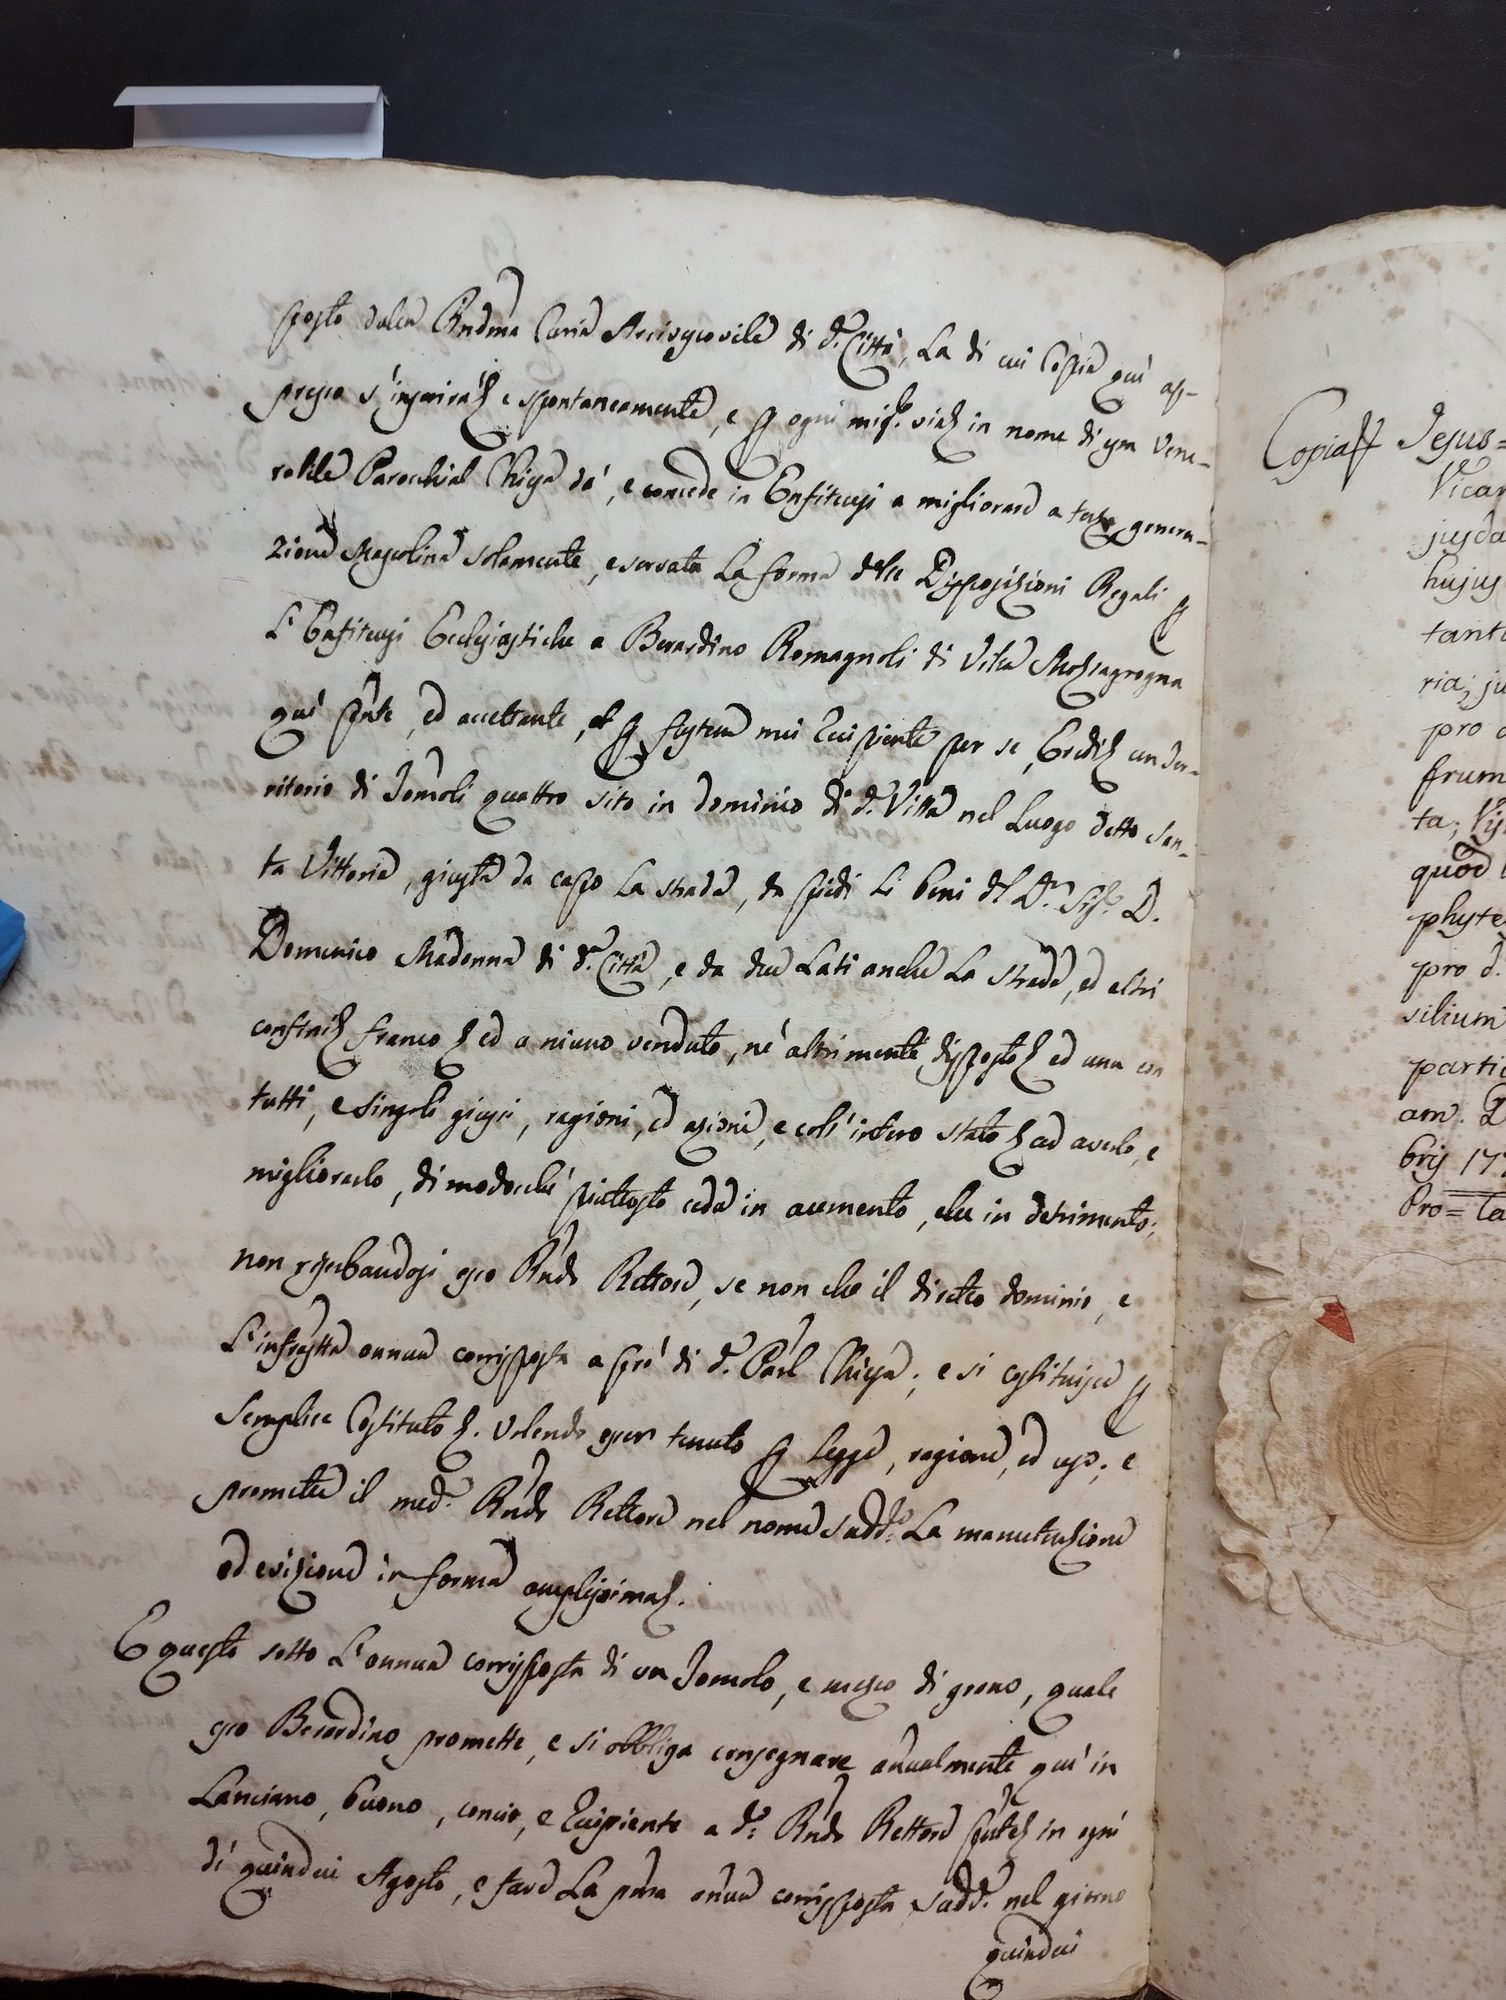 sposto dalla Rndma Curia Arcivescovile di d.ª Città, La di cui Copia quì ap-
presso s'inserirà e spontaneamente, e ogni migl.r via in nome di essa Vene-
rabile Parochial Chiesa dà, e concede in Enfiteusi a migliorare a terza genera-
zione Mascolina solamente, e servata La forma delle Disposizioni Regali
L'Enfiteusi Ecclesiastiche a Berardino Romagnoli di Villa Mozzagrogna
quì pnte, ed accettante, et me recipiente per se, Eredi un Ter-
ritorio di Tomoli quattro sito in dominio di d.ª Città nel Luogo detto San-
ta Vittoria, giusta da capo La strada, da piedi Li beni del D.r Sig.r D.
Domenico Madonna di d.ª Città, e da due Lati anche La strada, ed altri
confini franco ed a niuno venduto, nè altrimente disposto ed una con
tutti, e singoli giussi, ragioni, ed azioni, e coll'intero stato ad averlo, e
migliorarlo, di modocchè piuttosto ceda in aumento, che in detrimento;
non riserbandosi esso Rndo Rettore, se non che il diretto dominio, e
L'infrastta annua corrisposta a prò di d.ª Parl Chiesa; e si costituisce
Semplice Costituto. Volendo esser tenuto Legge, ragione, ed uso; e
promette il med.º Rndo Rettore nel nome sudd.º La manutenzione
ed evizione in forma amplissima.
E questo sotto L'annua corrisposta di un Tomolo, e mezzo di grano, quale
esso Berardino promette, e si obbliga consegnare annualmente quì in
Lanciano, buono, concio, e recipiente a d.º Rndo Rettore pnte in ogni
dì quindici Agosto, e fare La pma annua corrisposta sudd.ª nel giorno
quindici
Copia Jesus=
Vicar
jusda
hujus
tant
ria; ju
pro
frum
ta; Vis
quod
phyte
pro d.
silium
parti
am. D
bris 177
Pro= Ca